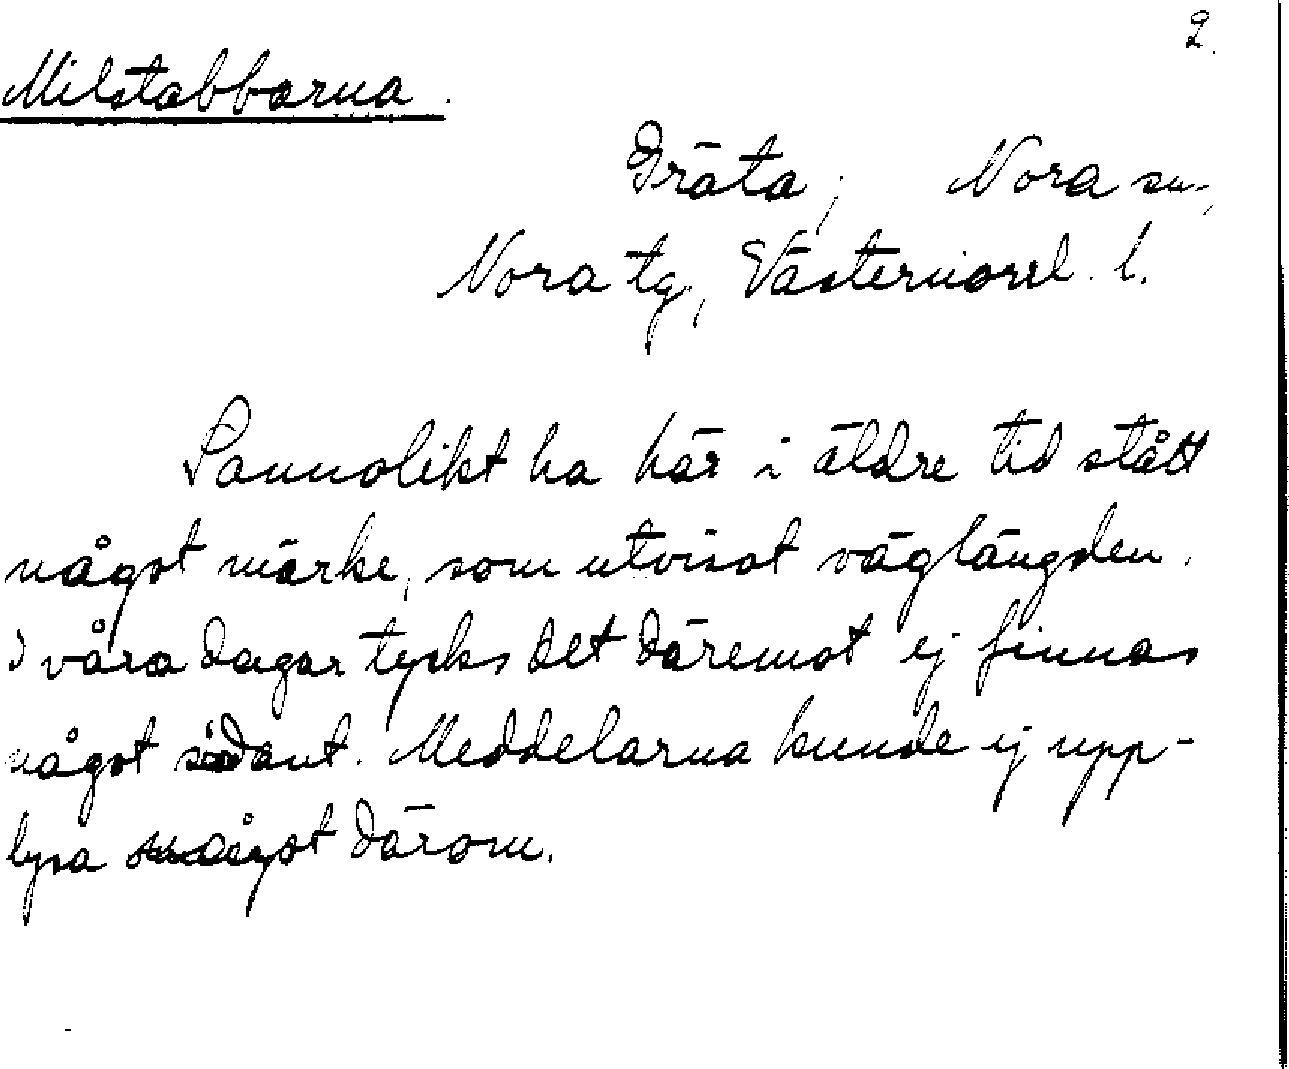 2.
Milstabbarna.
Gräta, Nora sn,
Nora tg, Västernorrl. l.
Sannolikt ha här i äldre tid stått
något märke, som utvisat väglängden.
I våra dagar tycks det däremot ej finnas
något sådant. Meddelarna kunde ej upp-
lysa något därom.